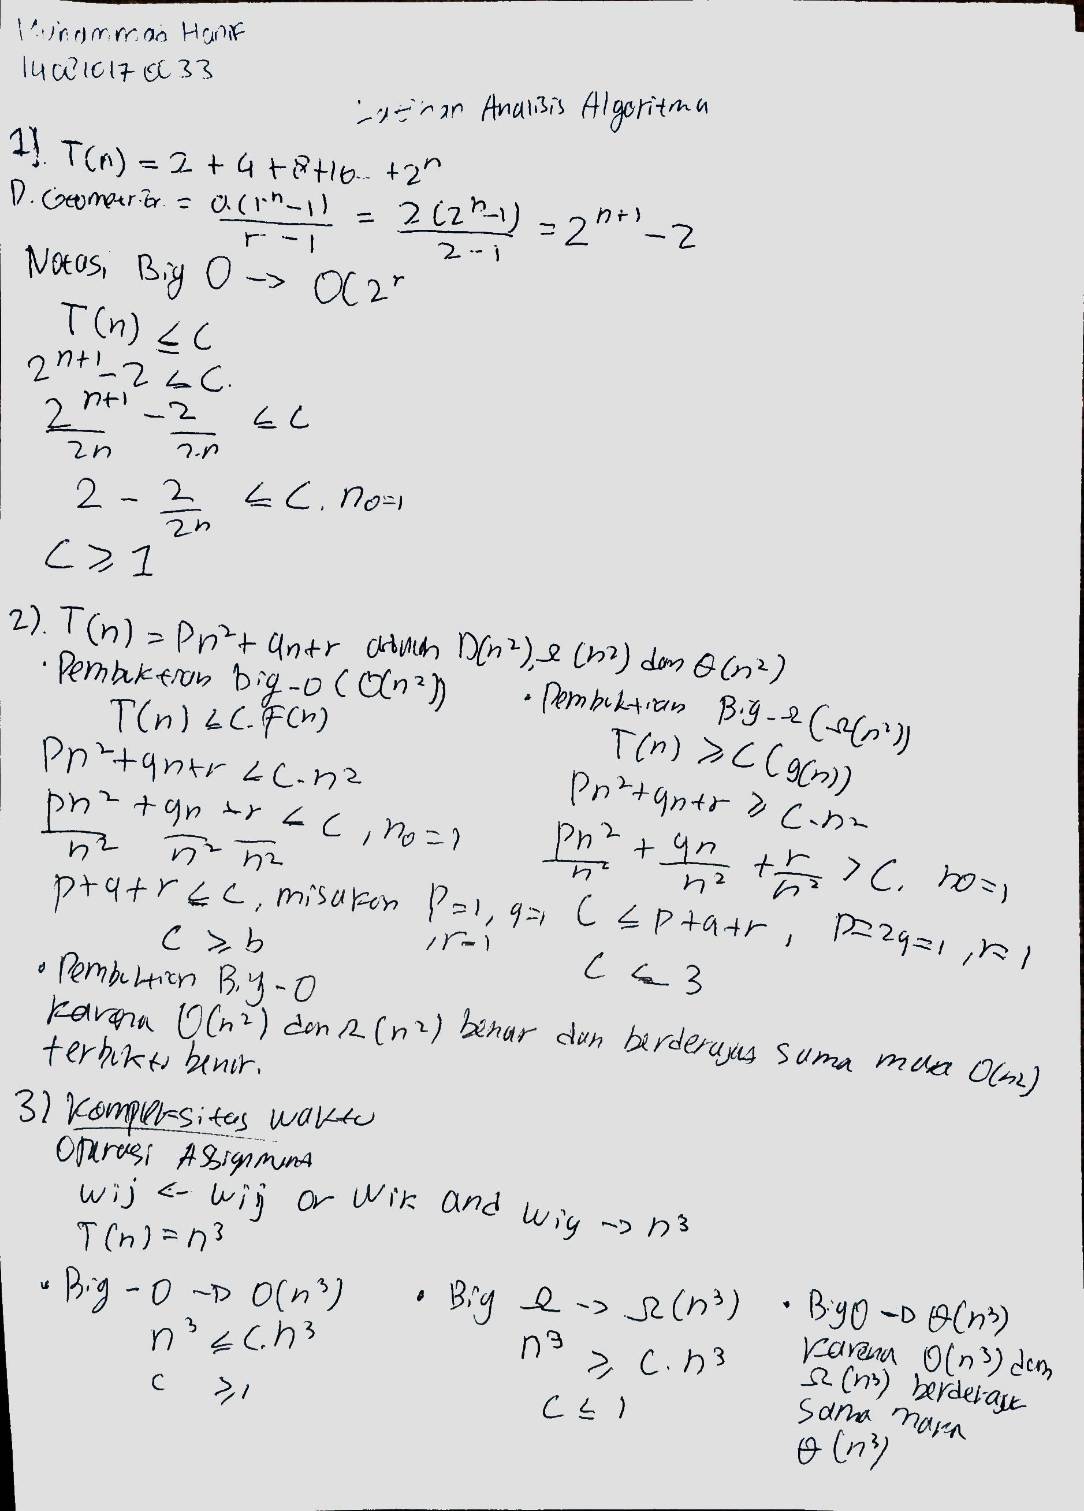 Muhammad Hanif
Latihan Analisis Algoritma
1). T(n) = 2 + 4 + 8 + 16 .. + 2^n
D. Geometri = a(r^n - 1) / r - 1 = 2(2^n - 1) / 2 - 1 = 2^n+1 - 2
Notasi Big O -> O(2^n
T(n) ≤ C
2^n+1 - 2 ≤ C.
2^n+1 / 2n - 2 / 2n ≤ C
2 - 2 / 2n ≤ C, n0=1
C ≥ 1
2). T(n) = Pn² + qn + r dalam O(n²), Ω(n²) dan θ(n²)
• Pembuktian big-O (O(n²))
T(n) ≤ C. F(n)
Pn² + qn + r ≤ C.n²
pn² / n² + qn / n² + r / n² ≤ C, n0=1
p+q+r ≤ C, misalkan P=1, q=1, r=1
C ≥ b
• Pembuktian Big-Ω (Ω(n²))
T(n) ≥ C (g(n))
Pn² + qn + r ≥ C.n²
Pn² / n² + qn / n² + r / n² > C, n0=1
C ≤ p+q+r, P=2 q=1, r=1
C ≤ 3
• Pembuktian Big-O
karena O(n²) dan Ω(n²) benar dan berderajas sama maka O(n²)
terbukti benar.
3) Kompleksitas waktu
Operasi Assignment
wij <- wij or wik and wiy -> n³
T(n) = n³
• Big-O -> O(n³)
n³ ≤ C.n³
C ≥ 1
• Big Ω -> Ω(n³)
n³ ≥ C.n³
C ≤ 1
• Big O -> θ(n³)
Karena O(n³) dan
Ω(n³) berderajat
sama maka
θ(n³)